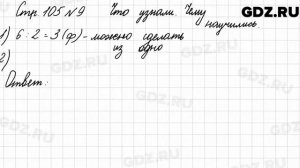 GDZ.RU
Стр. 105 № 9 Что узнали. Чему
научились
1) 6 : 2 = 3 (ф) - можно сделать
из одно
2)
Ответ:
GDZ.RU